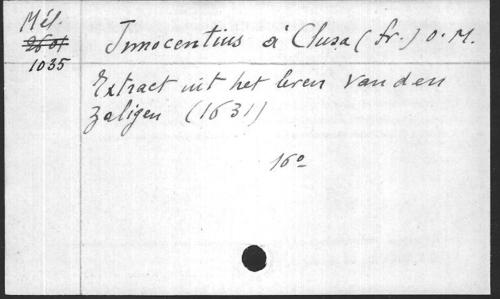 Mél.
2601
1035
Innocentius à Clusa (fr.) O. M.
Extract uit het leven van den
zaligen (1631)
16o